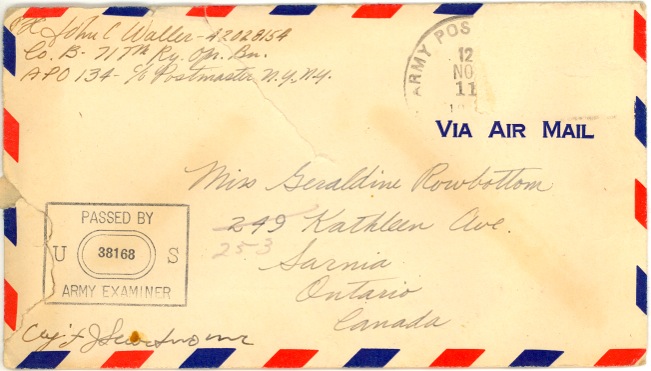 John C Waller - 42028154
Co. B - 717th Ry. Op. Bn.
APO 134 - c/o Postmaster, N.Y., N.Y.
ARMY POS
12
NO
11
VIA AIR MAIL
Miss Geraldine Rowbottom
249 Kathleen Ave.
253
Sarnia
Ontario
Canada
PASSED BY
U 38168 S
ARMY EXAMINER